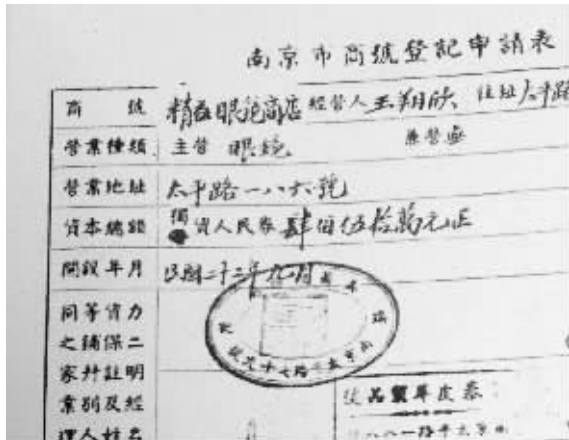 南京市商號登記申請表
商號 精益眼鏡商店 經營人 王翔欣 住址 太平路
營業種類 主營 眼鏡 兼營 無
營業地址 太平路一八六號
資本總額 獨資人民券 肆佰伍拾萬元正
開設年月 民國二十二年九月
同等資力
之鋪保二
家並註明
業別及經
理人姓名
泰皮革製品號